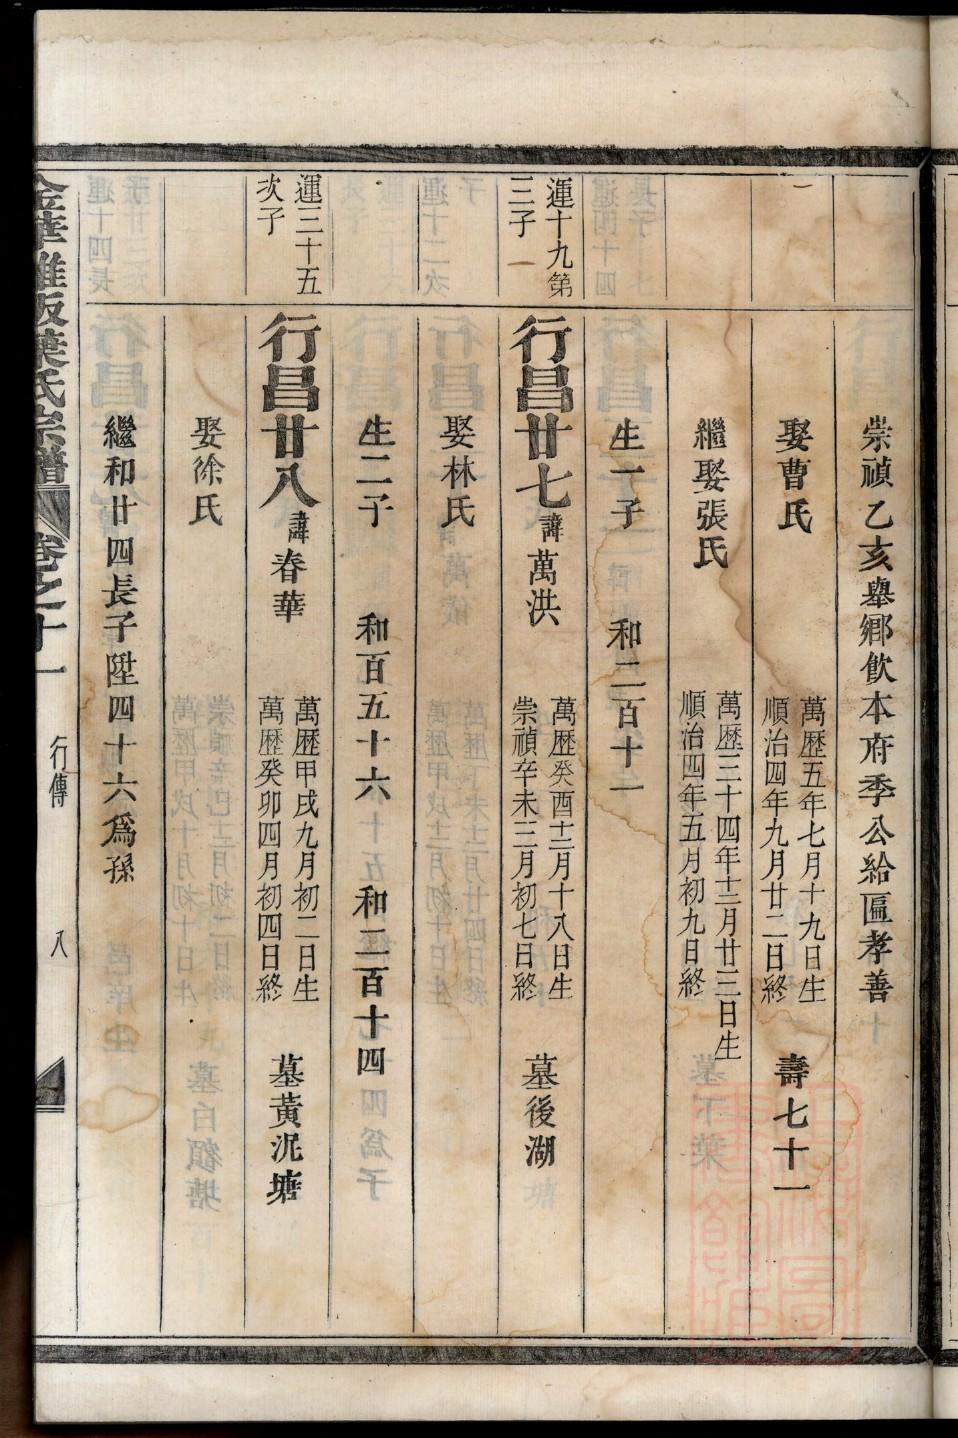 崇禎乙亥舉鄉飲本府季公給匾孝善
娶曹氏 萬歷五年七月十九日生 順治四年九月廿二日終 壽七十一
繼娶張氏 萬歷三十四年十二月廿三日生 順治四年五月初九日終
生一子 和二百十一
運十九第三子
行昌廿七 諱萬洪 萬歷癸酉十二月十八日生 崇禎辛未三月初七日終 墓後湖
娶林氏
生二子 和百五十六 和二百十四
運三十五次子
行昌廿八 諱春華 萬歷甲戌九月初二日生 萬歷癸卯四月初四日終 墓黃泥塘
娶徐氏
繼和廿四長子陞四十六爲孫
葉氏宗譜 卷之十一 行傳 八